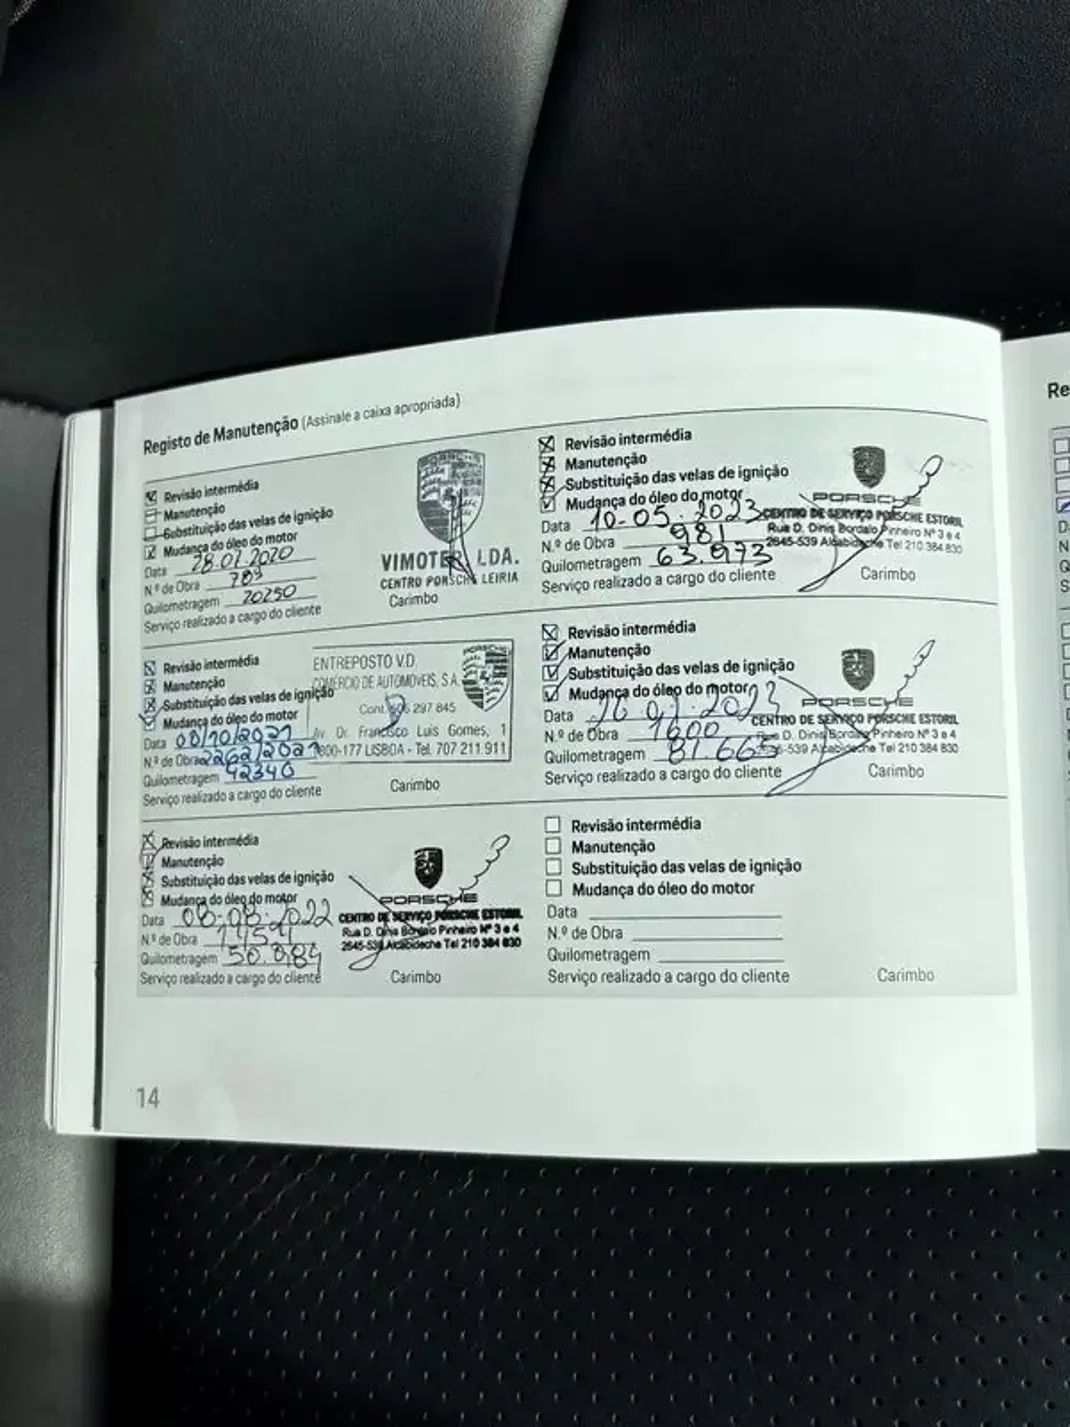 Registo de Manutenção (Assinale a caixa apropriada)
Revisão intermédia
Manutenção
Substituição das velas de ignição
Mudança do óleo do motor
Data 28.07.2020
N.º de Obra 789
Quilometragem 20250
Serviço realizado a cargo do cliente
PORSCHE
VIMOTER LDA.
CENTRO PORSCHE LEIRIA
Carimbo
Revisão intermédia
Manutenção
Substituição das velas de ignição
Mudança do óleo do motor
Data 08/10/2021
N.º de Obra 2262/2021
Quilometragem 42340
Serviço realizado a cargo do cliente
ENTREPOSTO V.D.
COMÉRCIO DE AUTOMÓVEIS, S.A.
Cont. 506 297 845
Av. Dr. Francisco Luis Gomes, 1
1800-177 LISBOA - Tel. 707 211 911
Carimbo
Revisão intermédia
Manutenção
Substituição das velas de ignição
Mudança do óleo do motor
Data 08-08-2022
N.º de Obra
Quilometragem 50.884
Serviço realizado a cargo do cliente
PORSCHE
CENTRO DE SERVIÇO PORSCHE ESTORIL
Rua D. Dinis Bordalo Pinheiro Nº 3 e 4
2645-539 Alcabideche Tel 210 364 830
Carimbo
Revisão intermédia
Manutenção
Substituição das velas de ignição
Mudança do óleo do motor
Data 10-05-2023
N.º de Obra 981
Quilometragem 63.973
Serviço realizado a cargo do cliente
PORSCHE
CENTRO DE SERVIÇO PORSCHE ESTORIL
Rua D. Dinis Bordalo Pinheiro Nº 3 e 4
2645-539 Alcabideche Tel 210 364 830
Carimbo
Revisão intermédia
Manutenção
Substituição das velas de ignição
Mudança do óleo do motor
Data
N.º de Obra 1600
Quilometragem 81.663
Serviço realizado a cargo do cliente
PORSCHE
CENTRO DE SERVIÇO PORSCHE ESTORIL
D. Dinis Bordalo Pinheiro Nº 3 e 4
-539 Alcabideche Tel 210 364 830
Carimbo
Revisão intermédia
Manutenção
Substituição das velas de ignição
Mudança do óleo do motor
Data
N.º de Obra
Quilometragem
Serviço realizado a cargo do cliente
Carimbo
14
Re